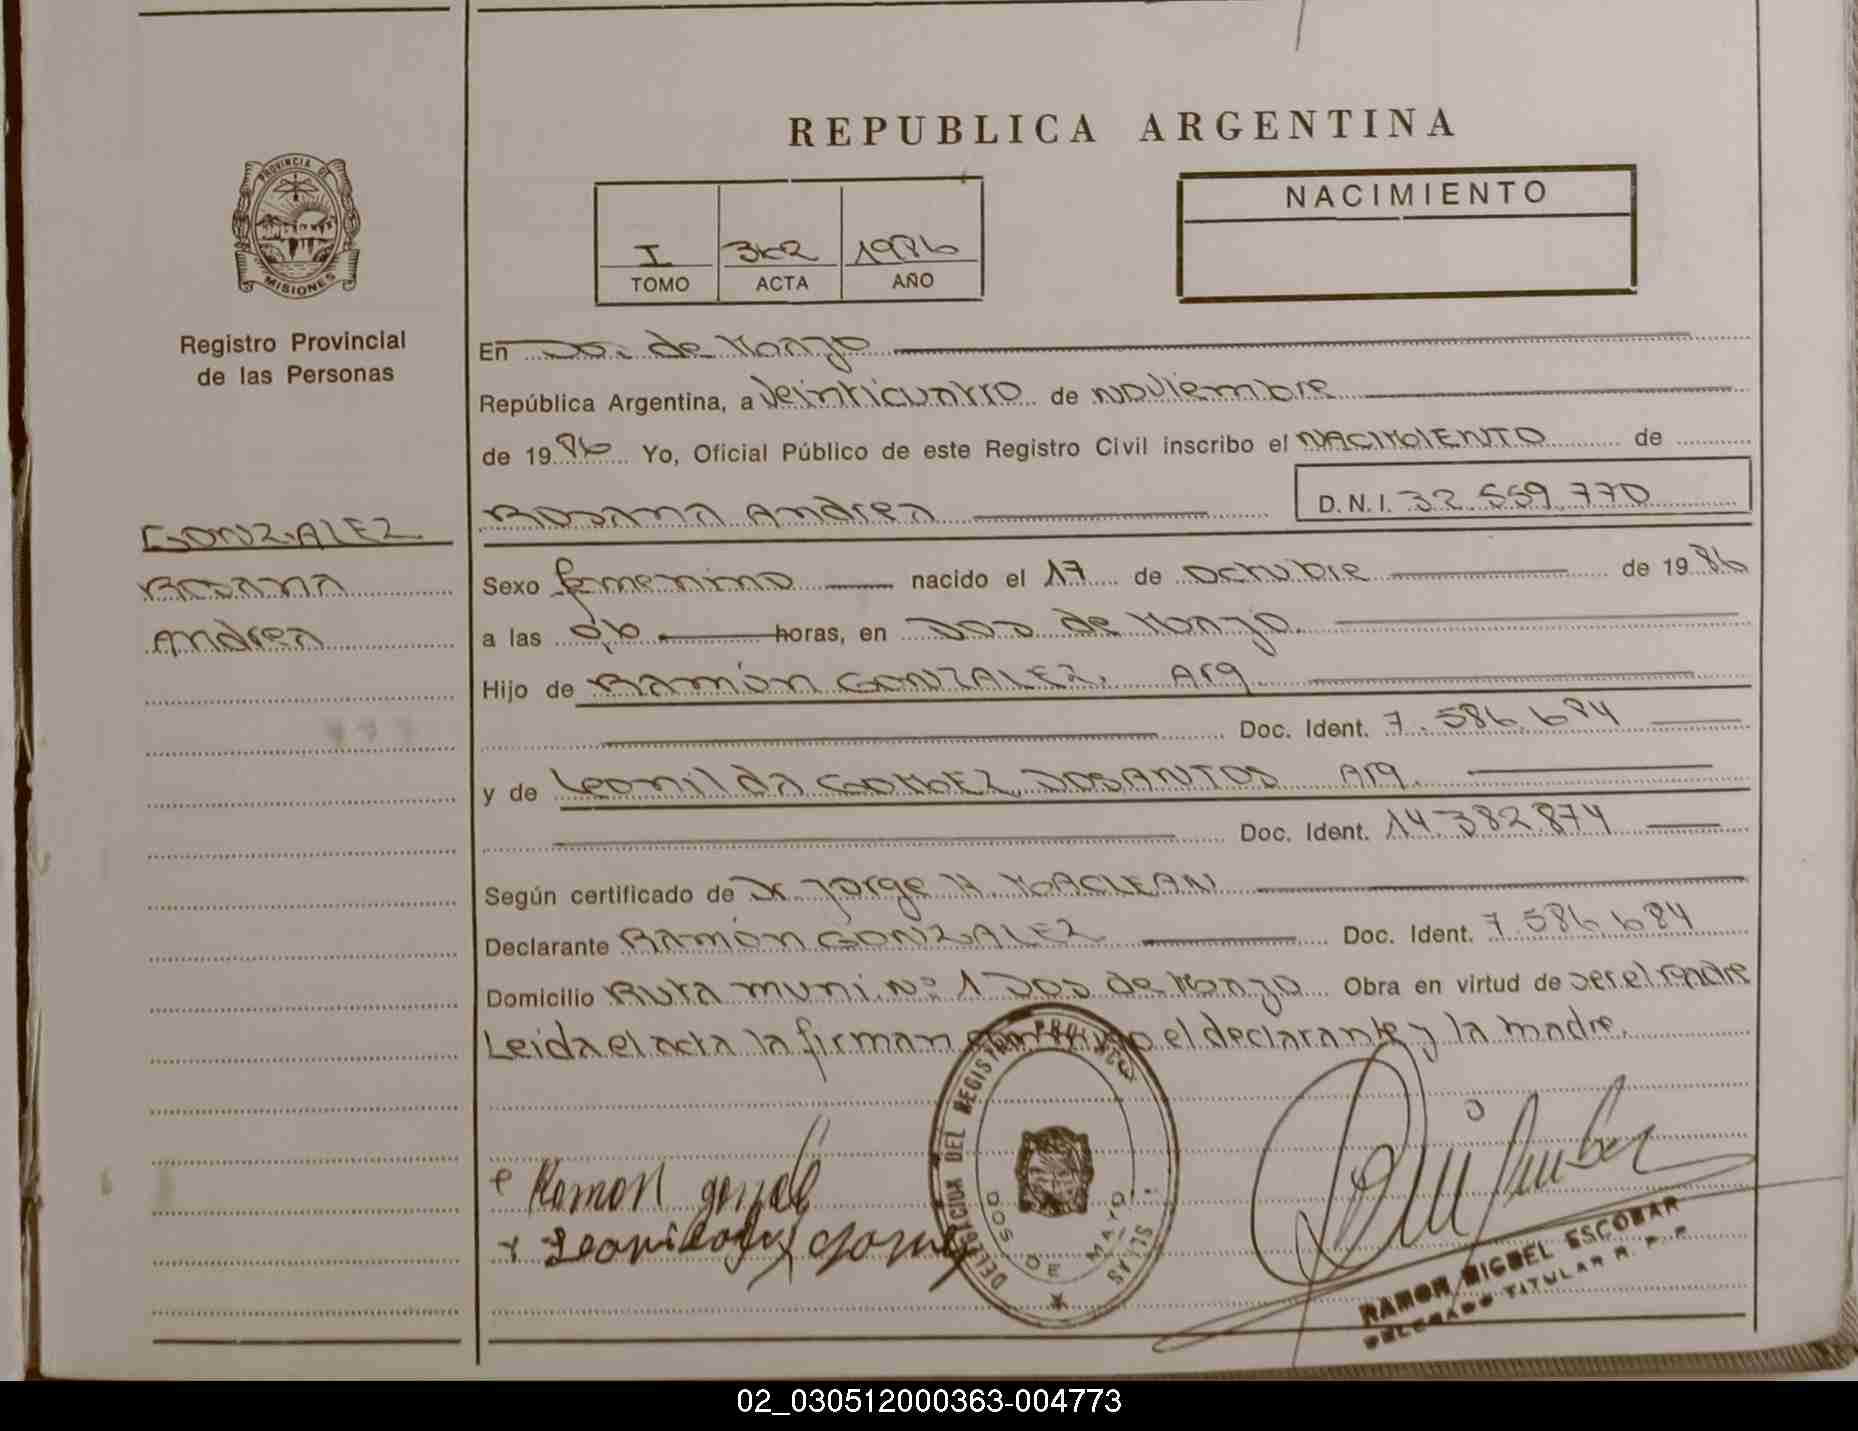 REPUBLICA ARGENTINA
PROVINCIA DE
MISIONES
Registro Provincial
de las Personas
I 362 1986
TOMO ACTA AÑO
NACIMIENTO
En Dos de Mayo
República Argentina, a veinticuatro de noviembre
de 1986 Yo, Oficial Público de este Registro Civil inscribo el NACIMIENTO de
Rosana Andrea D.N.I. 32.559.770
GONZALEZ
Rosana
Andrea
Sexo femenino nacido el 17 de octubre de 1986
a las horas, en Dos de Mayo.
Hijo de Ramón GONZALEZ, Arg.
Doc. Ident. 7.586.684
y de Leonilda GOMEZ DOSANTOS Arg.
Doc. Ident. 14.382.874
Según certificado de Dr. Jorge H. MACLEAN
Declarante Ramón GONZALEZ Doc. Ident. 7.586.684
Domicilio Ruta muni. Nº 1 Dos de Mayo Obra en virtud de ser el padre
Leida el acta la firman conmigo el declarante y la madre.
DELEGACION DEL REGISTRO
DOS DE MAYO
Ramon
RAMON MIGUEL ESCOBAR
DELEGADO TITULAR R. P. P.
02_030512000363-004773